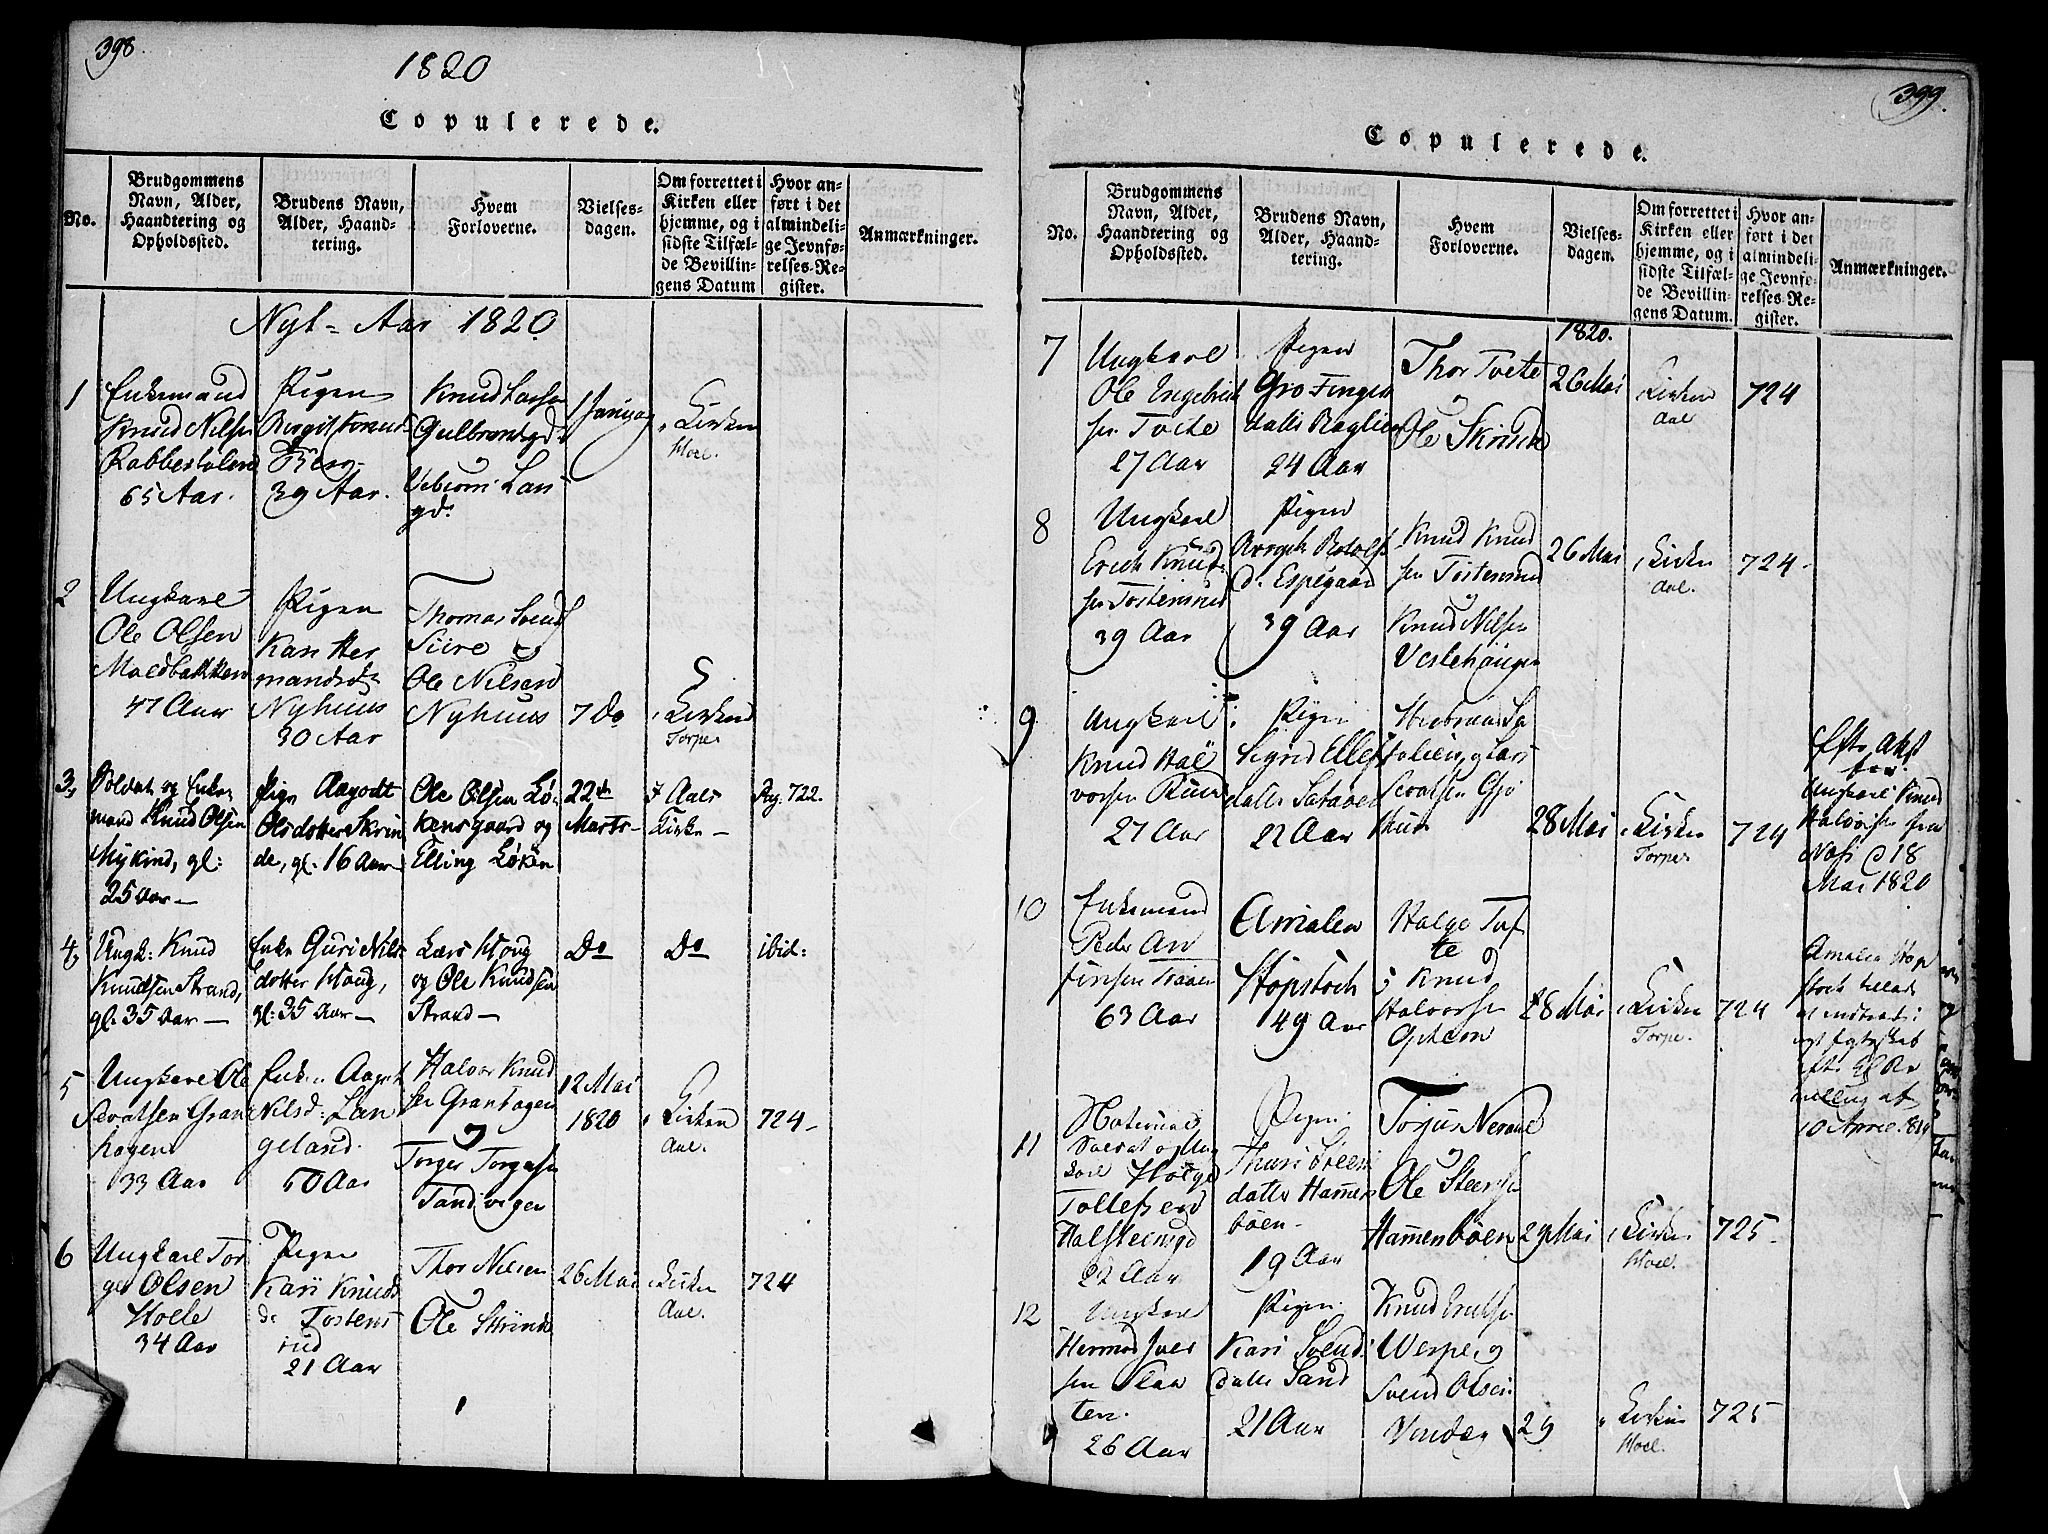 398.
1820
Copulerede.
No.
Brudgommens
Navn, Alder,
Haandtering og
Opholdssted.
Brudens Navn,
Alder, Haand-
tering.
Hvem
Forloverne.
Vielses-
dagen.
Om forrettet i
Kirken eller
hjemme, og i
sidste Tilfæl-
de Bevillin-
gens Datum
Hvor an-
ført i det
almindeli-
ge Jevnfø-
relses-Re-
gister.
Anmærkninger.
Nyt-Aar 1820
1
Enkemand
Knud Nilsen
Rabbestolen
65 Aar.
Pigen
Birgit
39 Aar.
Knud Larsen
Gulbrandsgd
Lars
gd.
1 Januar
Kirken
Hoel.
2
Ungkarl
Ole Olsen
Moldbakken
47 Aar
Pigen
Kari Her
mandsd
Nyhuus
30 Aar
Thomas Svends
Siire og
Ole Nilsen
Nyhuus
7 Do
i Kirken
Torpe
3,
Soldat og Enke-
mand Knud Olsen
Mykind, gl:
25 Aar —
Pige Aagodt
Olsdotter Skrin
de, gl. 16 Aar —
Ole Olsen Lø-
kensgaard og
Elling Løken
22de
Marts-
I Aals
Kirke —
Pag. 722.
4,
Ungk: Knud
Knudsen Strand,
gl. 35 Aar —
Enke Guri Nils-
dotter Houg,
gl: 35 Aar —
Lars Houg
og Ole Knudsen
Strand —
Do
Do
ibid:
5
Ungkarl Ole
Sevatsen Gran
hagen
33 Aar
Enken Aaget
Nilsd: Lan
geland.
50 Aar
Halvor Knud
sen Granhagen
og
Torger Torgersen
Sandvigen
12 Mai
1820
i Kirken
Aal.
724 -
6
Ungkarl Tor
ger Olsen
Hoele
34 Aar
Pigen
Kari Knuds
d. Tostens
rud
21 Aar
Thor Nilsen
og
Ole Skrinde
26 Mai
i Kirken
Aal.
724
399.
Copulerede.
No.
Brudgommens
Navn, Alder,
Haandtering og
Opholdssted.
Brudens Navn,
Alder, Haand-
tering.
Hvem
Forloverne.
Vielses-
dagen.
Om forrettet i
Kirken eller
hjemme, og i
sidste Tilfæl-
de Bevillin-
gens Datum.
Hvor an-
ført i det
almindeli-
ge Jevnfø-
relses-Re-
gister.
Anmærkninger.
1820.
7
Ungkarl
Ole Ingebrict
sen Tveite
27 Aar
Pigen
Gro Finger
datter
24 Aar
Thor Tveite
og
Ole Skrinde
26 Mai
i Kirken
Aal
724
8
Ungkarl
Erich Knud-
sen Tostensrud
39 Aar
Pigen
Rotolfs
d. Espegaard
39 Aar
Knud Knud
sen Tostensrud
og
Knud Nilsen
Veslehaugen
26 Mai
i Kirken
Aal.
724 -
9
Ungkarl
Knud Hal
vorsen Ruud
27 Aar
Pigen
Sigrid Ellefs
datter Sataaen
22 Aar
og Lars
28 Mai
i Kirken
Torpe.
724
Efter Attest
for
Ungkarl Knud
Halvorsen fra
18
Mai 1820
10
Enkemand
Peder An
finsen
63 Aar
Amalea
Stopstoch
49 Aar
Halge Tuf
te
og Knud
Halvorsen
Opheim
28 Mai
i Kirken
Torpe.
724
Amalea Stop
stoch
10 April.
11
Soldat og Ung
karl Holge
Tollefsen
Halsteensgd
22 Aar
Pigen
Thuri Steens
datter Hammers
bøen -
19 Aar
Torjus Neraal
og
Ole Steensen
Hammersbøen
29 Mai
i Kirken
Hoel.
725 -
12
Ungkarl
Hermod Iver
sen Slaa
ten.
26 Aar
Pigen
Kari Svend
datter Sand
21 Aar
Knud
og
Svend Olsen
29
Kirken
Hoel.
725